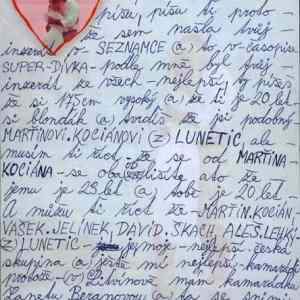 píšu, píšu ti proto -
že sem našla tvůj -
inzerát v - SEZNAMCE (a) to, v časopise
SUPER-DÍVKA - podle mně byl tvůj -
inzerát ze všech - nejlepší, ty píšeš
že si 175cm vysoký (a) že ti je 20 let
si blonďák (a) tvrdíš že si podobný -
MARTINOVI. KOCIÁNOVI (z) LUNETIC ale -
musím ti říct že se od MARTINA -
KOCIÁNA - se oba ato že -
jemu je 23 let (a) tobě je 20 let
A můžu ti říct že - MARTIN. KOCIÁN,
VAŠEK. JELÍNEK, DAVID. ŠKACH, ALEŠ. LEHKÝ
z LUNETIC - je moje - nejlepší - česká
skupina (a) ještě mí nejlepší - kamarádi
protože - (v) Litvínově mám kamarádku
Beranovou (a) ta se